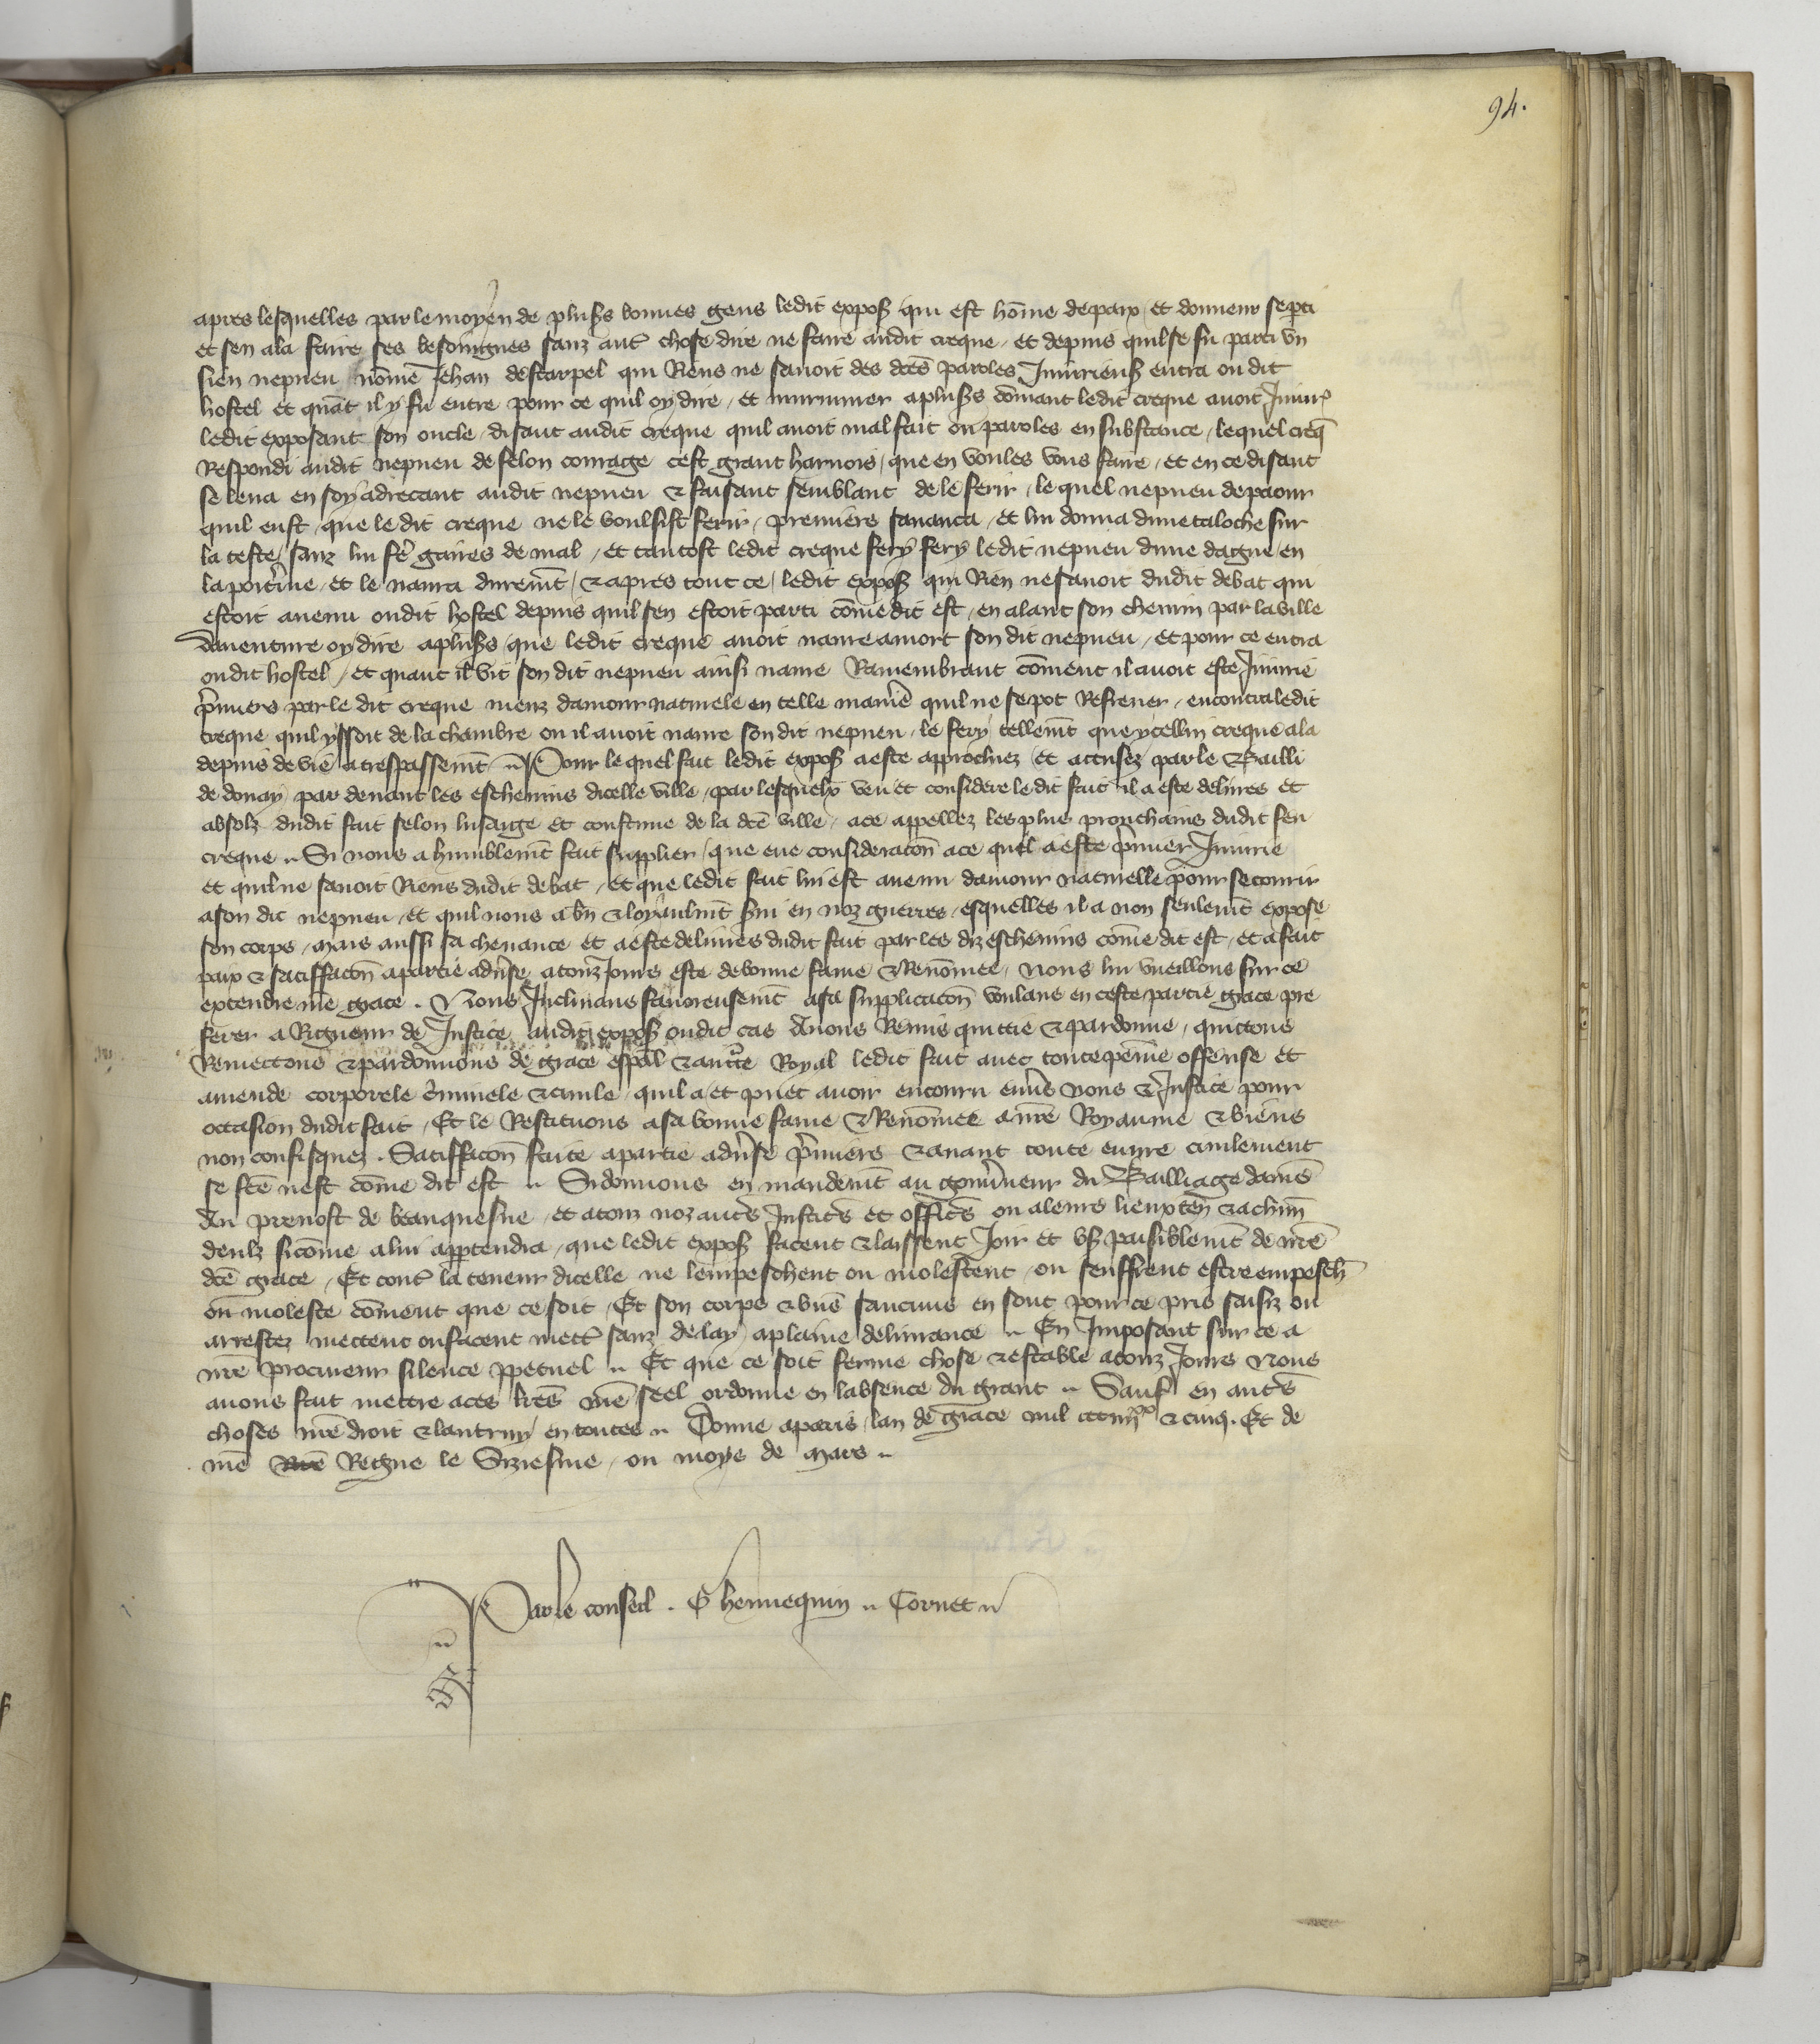 94.
apres lesquelles par le moyen de plus᷒s bonnes gens ledit expos̄ qui est hōme de paix et donneur se parti
et sen ala faire ses besoingnes sanz aut᷒ chose dire ne faire audit creque / et depuis quil se fu parti vn
sien nepueu nōme Jehan descarpel qui Riens ne sauoit des dc̄es paroles Iniurieus̄ entra ou dit
hostel et quāt il y fu entre pour ce quil oy dire / et murmurer a plus᷒s cōmant ledit creque auoit Iniur᷒
ledit exposant son oncle / disant audit creque quil auoit mal fait ou paroles en substance / lequel creq̄
Respondi audit nepueu de felon courage cest grant harnois / que en voules vous faire / et en ce disant
se leua en soy adrecant audit nepueu & faisant semblant de le ferir / le quel nepueu de paour
quil eust / que le dit creque ne le voulsist ferir / premiers sauanca / et lui donna dune taloche sur
la teste / sanz lui fe᷒ gaires de mal / et tantost ledit creque fery fery ledit nepueu dune dague en
la poit᷒ine / et le naura duremt̄ / & apres tout ce / ledit expos̄ qui Rien ne sauoit dudit debat qui
estoit auenu oudit hostel depuis quil sen estoit parti cōme dit est / en alant son chemin par la ville
dauenture oy dire a plus᷒s / que ledit creque auoit naure a mort son dit nepueu / et pour ce entra
oudit hostel / et quant il vit son dit nepueu ainsi naure Ramembrant cōment il auoit este Iniurie
p᷒miers par le dit creque meuz damour naturele en telle manie᷒ quil ne se pot Refrener / encontra ledit
creque quil yssoit de la chambre ou il auoit naure son dit nepueu / le fery tellemt̄ que ycellui creque ala
depuis de vie a trespassemt̄ Pour le quel fait ledit expos̄ a este approchiez et accusez par le Bailli
de douay par deuant les escheuins dicelle ville / par lesquelx veu et considere le dit fait il a este deliures et
absolz dudit fait selon lusaige et coustume de la dc̄e ville / a ce appellez les plus prouchains dudit feu
creque Si nous a humblemt̄ fait supplier / que eue consideracōn a ce quil a este p᷒mier Iniurie
et quil ne sauoit Riens dudit debat / et que ledit fait lui est auenu damour naturelle pour secourir
a son dit nepueu / et quil nous a bn̄ & loyaulmt̄ s᷒ui en noz guerres / esquelles il a non seulemt̄ expose
son corps / mais aussi sa cheuance et a este deliures dudit fait par les diz escheuins cōme dit est / et a fait
paix & satiffacōn a partie adu᷒se a touzjours este de bonne fame & Renōmee / nous lui vueillons sur ce
extendre nr̄e grace . Nous Inclinans fauorensemt̄ a sa supplicacōn voulans en ceste partie grace pre
ferer a Rigueur de Justice audit expos̄ oudit cas Auons Remis quittie & pardonne / quittons
Remettons & pardonnons de grace esp̄al & aucte᷒ Royal ledit fait auec toute peine offense et
amende corporele c᷒iminele & ciuile quil a et puet auoir encouru enu᷒s nous & Justice pour
occasion dudit fait / Et le Restituons a sa bonne fame & Renōmee a nr̄e Royaume & biens
non confisquez . Satiffacōn faite a partie adu᷒se p᷒miers & auant toute euure ciuilement
se fc̄e nest cōme dit est Si donnons en mandemt̄ au gouu᷒neur du Bailliage damiens
Au preuost de beauquesne / et a touz noz aut᷒s Justic᷒s et offic᷒s ou a leurs lieuxten̄ & a chun̄
deulz sicōme a lui appartendra / que ledit expos̄ facent & laissent Joir et vs̄ paisiblemt̄ de nr̄e
dc̄e grace / Et cont᷒ la teneur dicelle ne lempeschent ou molestent / ou seuffrent estre empesch̄
ou moleste cōment que ce soit / Et son corps & biēs saucuns en sont pour ce pris saisiz ou
arrestez mettent ou facent mett᷒ sanz delay a plaine deliurance En Imposant sur ce a
nr̄e procureur silence p̱petuel Et que ce soit ferme chose & estable a touz Jours Nous
auons fait mettre a ces lr̄es nr̄e seel ordonne en labsence du grant Sauf en aut᷒s
choses nr̄e droit & lautruy en toutes Donne a paris / lan de grace mil ccc iiij xx & cinq. Et de
nr̄e Regne le Siziesme / ou moys de mars
Par le conseil . G hennequin Cornet